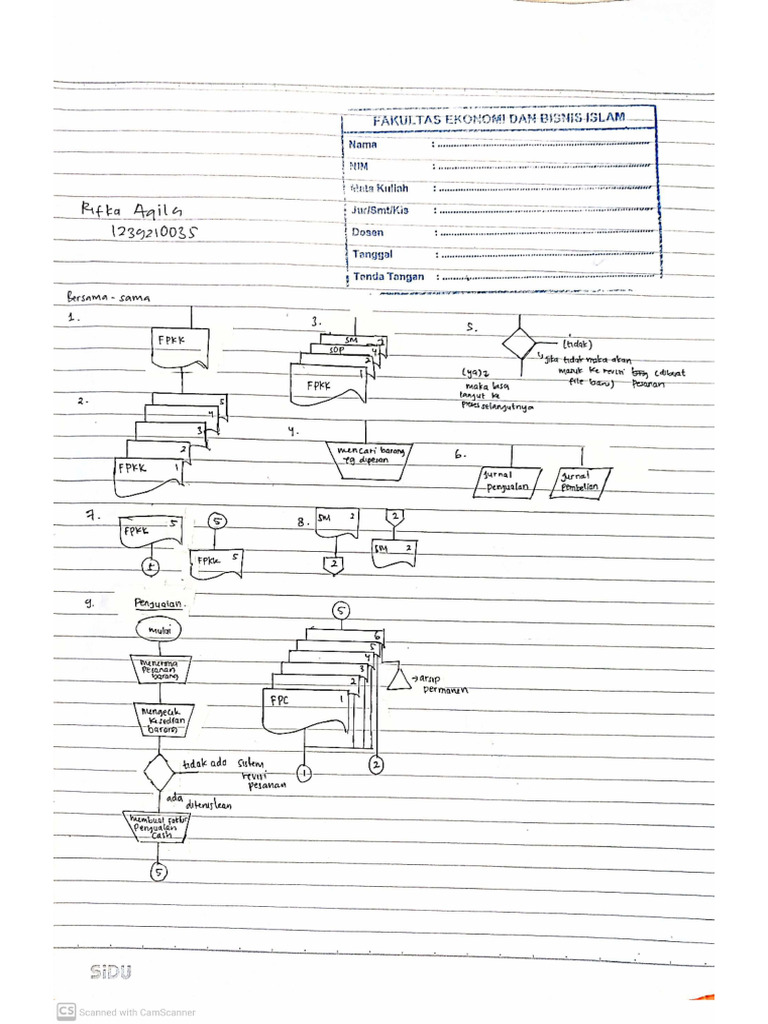 FAKULTAS EKONOMI DAN BISNIS ISLAM
Nama :
NIM :
Mata Kuliah :
Jur/Smt/Kls :
Dosen :
Tanggal :
Tanda Tangan :
Rifka Aqila
1239210035
Bersama - sama
1.
FPKK
2.
5
4
3
2
FPKK 1
3.
SM 2
SOP 4
2
1
FPKK
4.
mencari barang
yg dipesan
5.
(tidak)
jika tidak maka akan
masuk ke revisi (dibuat
file baru) pesanan
(ya)
maka bisa
lanjut ke
proses selanjutnya
6.
Jurnal
Penjualan
Jurnal
Pembelian
7.
FPKK 5
5
FPKK 5
8.
SM 2
2
2
SM 2
9. Penjualan.
mulai
menerima
pesanan
barang
mengecek
kesedian
barang
tidak ada sistem
revisi
pesanan
ada
diteruskan
membuat faktur
Penjualan
Cash
5
5
6
5
4
3
2
FPC 1
arsip
permanen
1
2
SiDU
CS Scanned with CamScanner